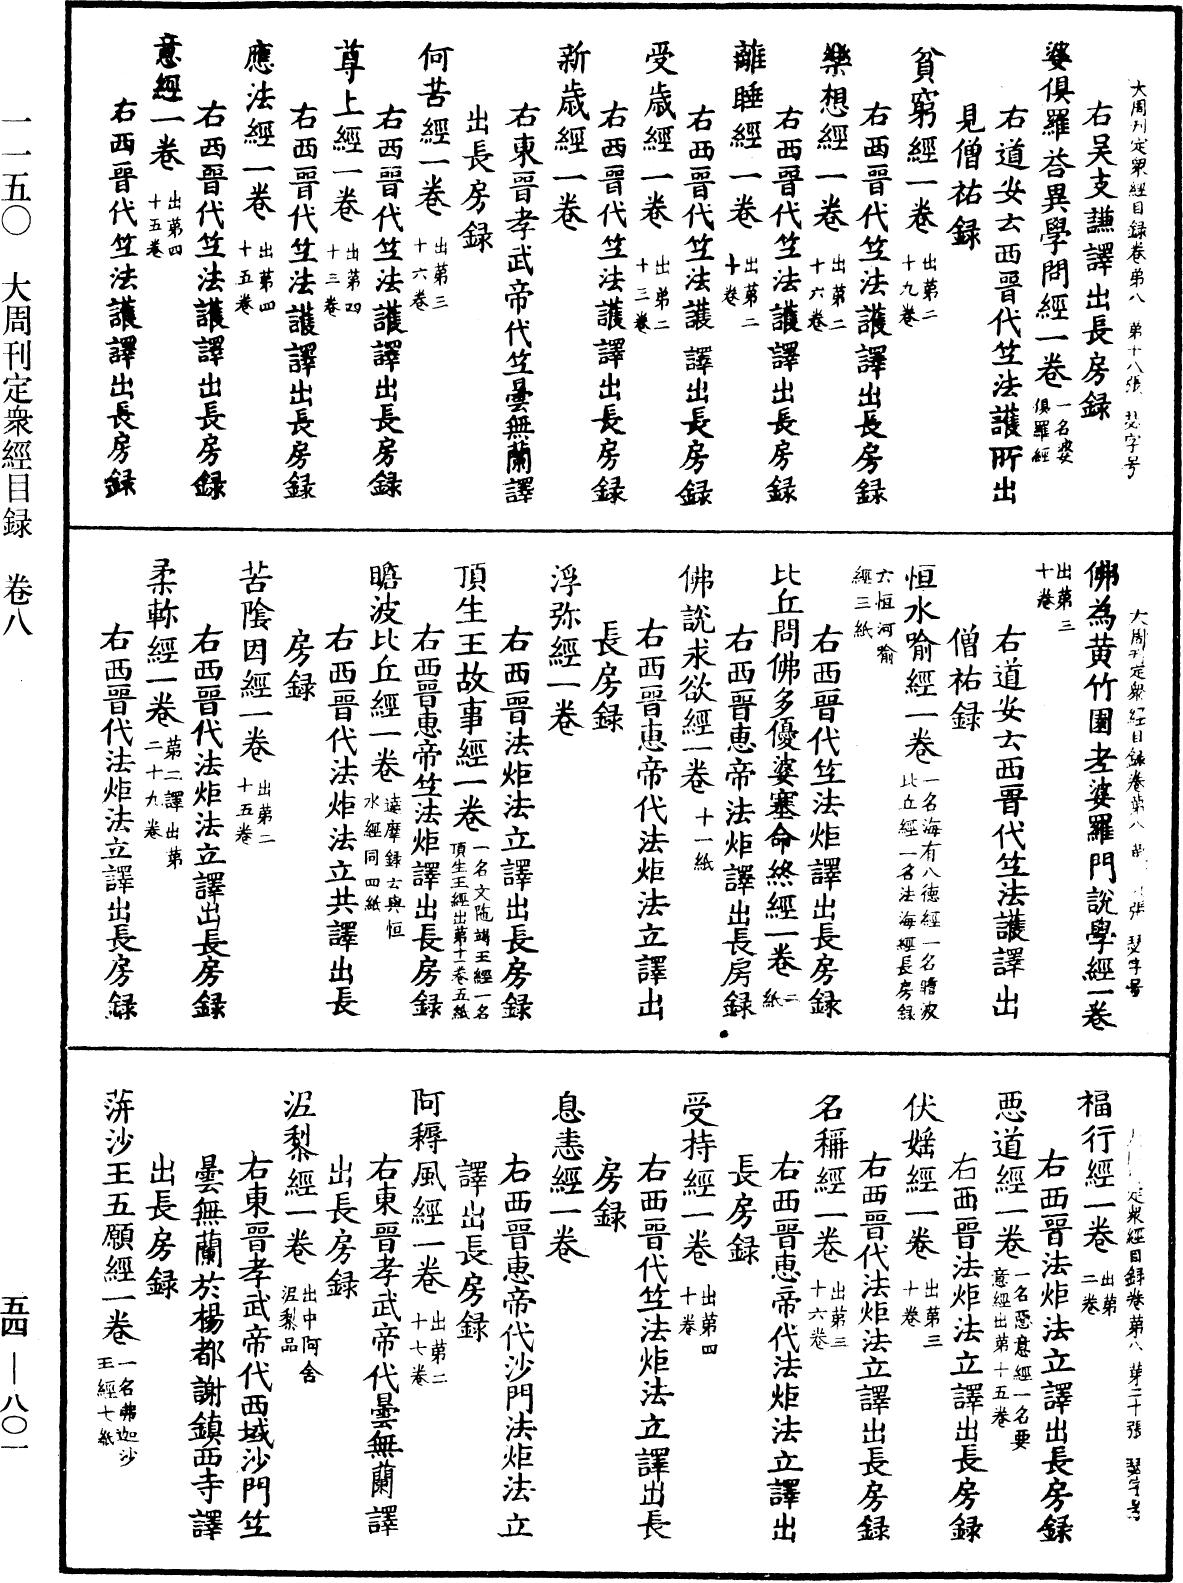 大周刊定衆經目録卷第八　第十八張　瑟字号
右吴支謙譯出長房録
婆俱羅荅異學問經一卷一名婆
俱羅經
右道安云西晉代竺法護所出
見僧祐録
貧窮經一卷出第二
十九卷
右西晉代竺法護譯出長房録
樂想經一卷出第二
十六卷
右西晉代竺法護譯出長房録
離睡經一卷出第二
十卷
右西晉代竺法護譯出長房録
受歳經一卷出第二
十三卷
右西晉代竺法護譯出長房録
新歳經一卷
右東晉孝武帝代竺曇無蘭譯
出長房録
何苦經一卷出第三
十六卷
右西晉代竺法護譯出長房録
尊上經一卷出第四
十三卷
右西晉代竺法護譯出長房録
應法經一卷出第四
十五卷
右西晉代竺法護譯出長房録
意經一卷出第四
十五卷
右西晉代竺法護譯出長房録
大周刊定衆經目録卷第八　張　瑟字号
佛為黄竹園老婆羅門說學經一卷
出第三
十卷
右道安云西晉代竺法護譯出
僧祐録
恒水喻經一卷一名海有八德經一名瞻波
比丘經一名法海經長房録
云恒河喻
經三紙
右西晉代竺法炬譯出長房録
比丘問佛多優婆塞命終經一卷二
紙
右西晉惠帝法炬譯出長房録
佛說求欲經一卷十一紙
右西晉惠帝代法炬法立譯出
長房録
浮弥經一卷
右西晉法炬法立譯出長房録
頂生王故事經一卷一名文陁竭王經一名
頂生王經出第十一卷五紙
右西晉惠帝竺法炬譯出長房録
瞻波比丘經一卷達摩録云與恒
水經同四紙
右西晉代法炬法立共譯出長
房録
苦隂因經一卷出第二
十五卷
右西晉代法炬法立譯出長房録
柔軟經一卷第二譯出第
二十九卷
右西晉代法炬法立譯出長房録
定衆經目録卷第八　第二十張　瑟字号
福行經一卷出第
二卷
右西晉法炬法立譯出長房録
惡道經一卷一名惡意經一名要
意經出第十五卷
右西晉法炬法立譯出長房録
伏婬經一卷出第三
十卷
右西晉代法炬法立譯出長房録
名稱經一卷出第三
十六卷
右西晉惠帝代法炬法立譯出
長房録
受持經一卷出第四
十卷
右西晉代竺法炬法立譯出長
房録
息恚經一卷
右西晉惠帝代沙門法炬法立
譯出長房録
阿耨風經一卷出第二
十七卷
右東晉孝武帝代曇無蘭譯
出長房録
泥犁經一卷出中阿含
泥犁品
右東晉孝武帝代西域沙門竺
曇無蘭於楊都謝鎮西寺譯
出長房録
蓱沙王五願經一卷一名弗迦沙
王經七紙
一一五〇　大周刊定衆經目録　卷八
五四—八〇一